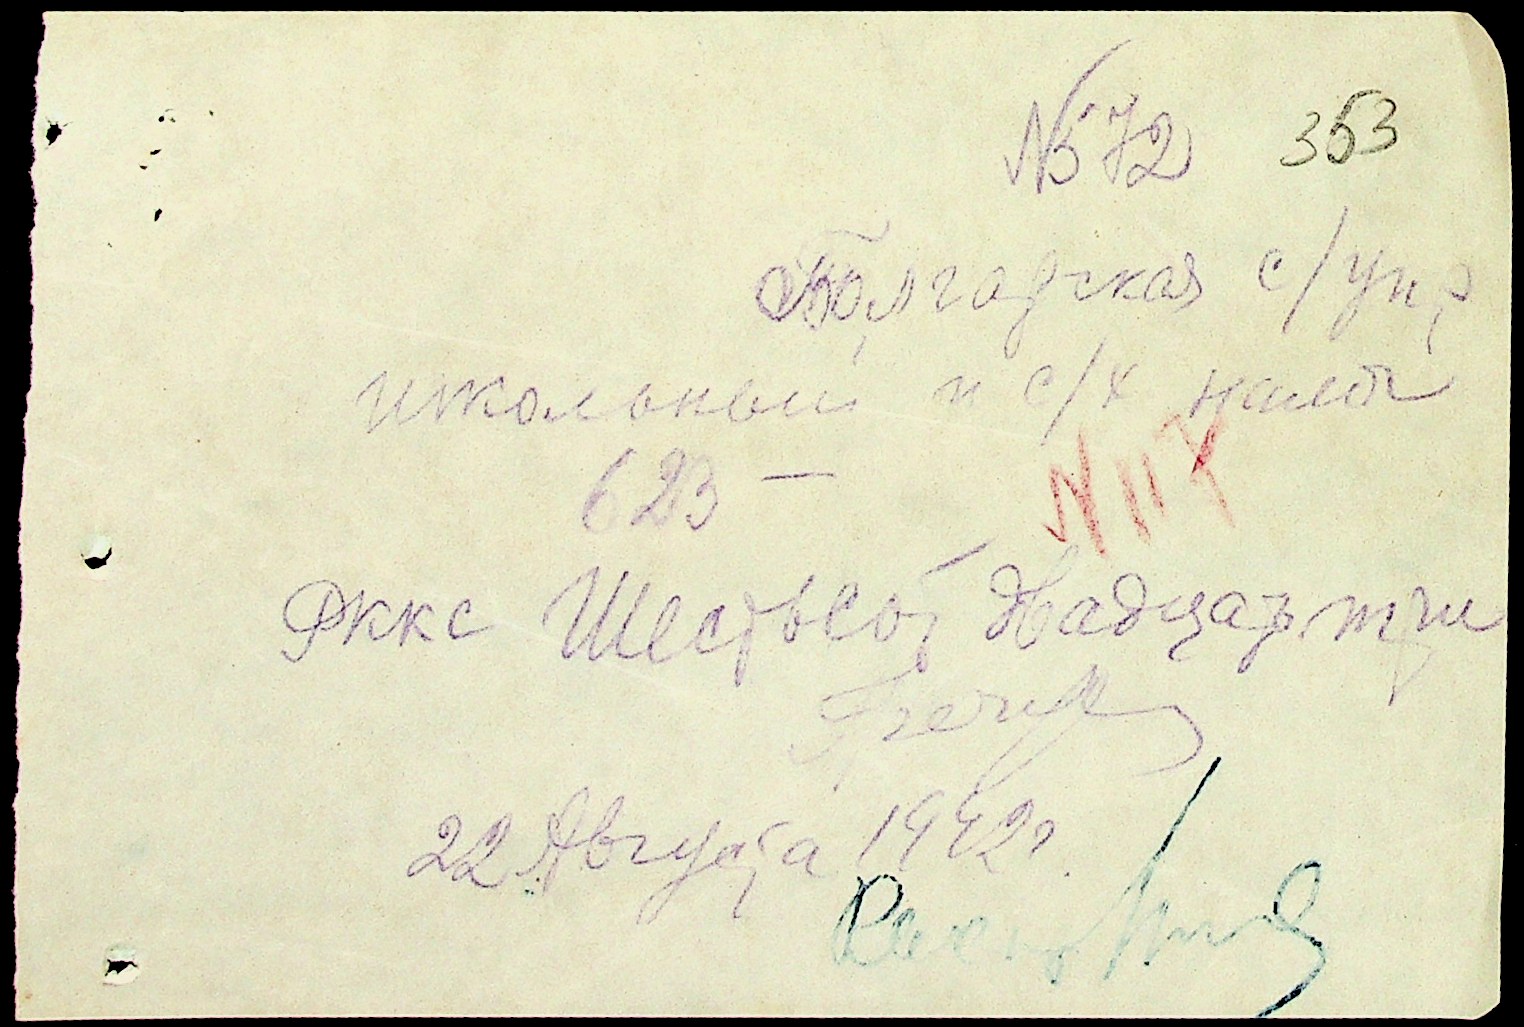 № 572 353
Болгарская с/упр
школьный и с/х налог
623 —
№ 117
РККС Шестьсот Надцать три
22 Августа 1942г